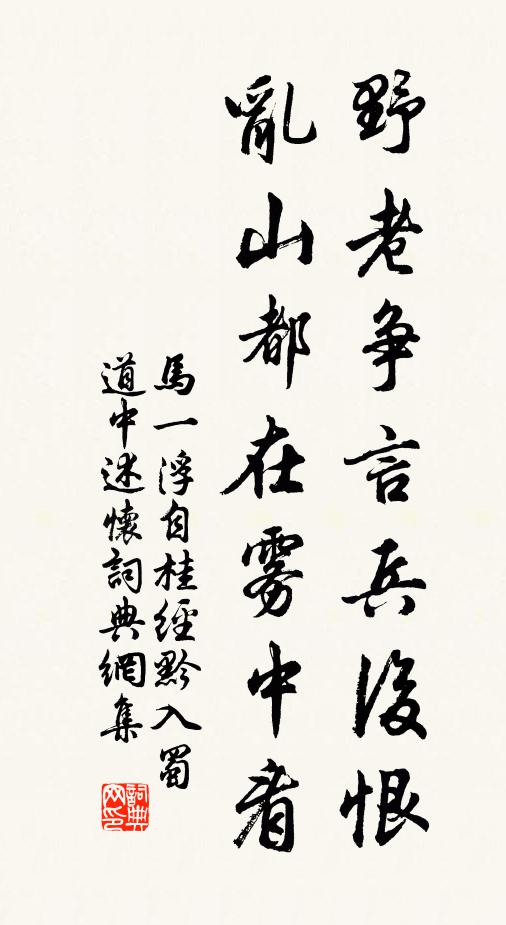 野老争言兵後恨
亂山都在雾中看
馬一浮自桂經黔入蜀
道中述懷詞典網集
詞典网印